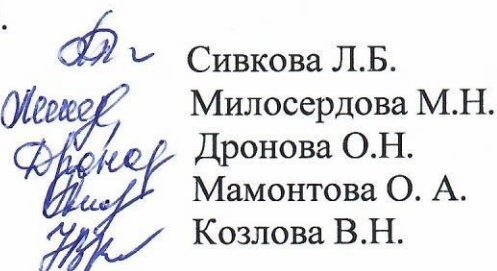 Сивкова Л.Б.
Милосердова М.Н.
Дронова О.Н.
Мамонтова О. А.
Козлова В.Н.